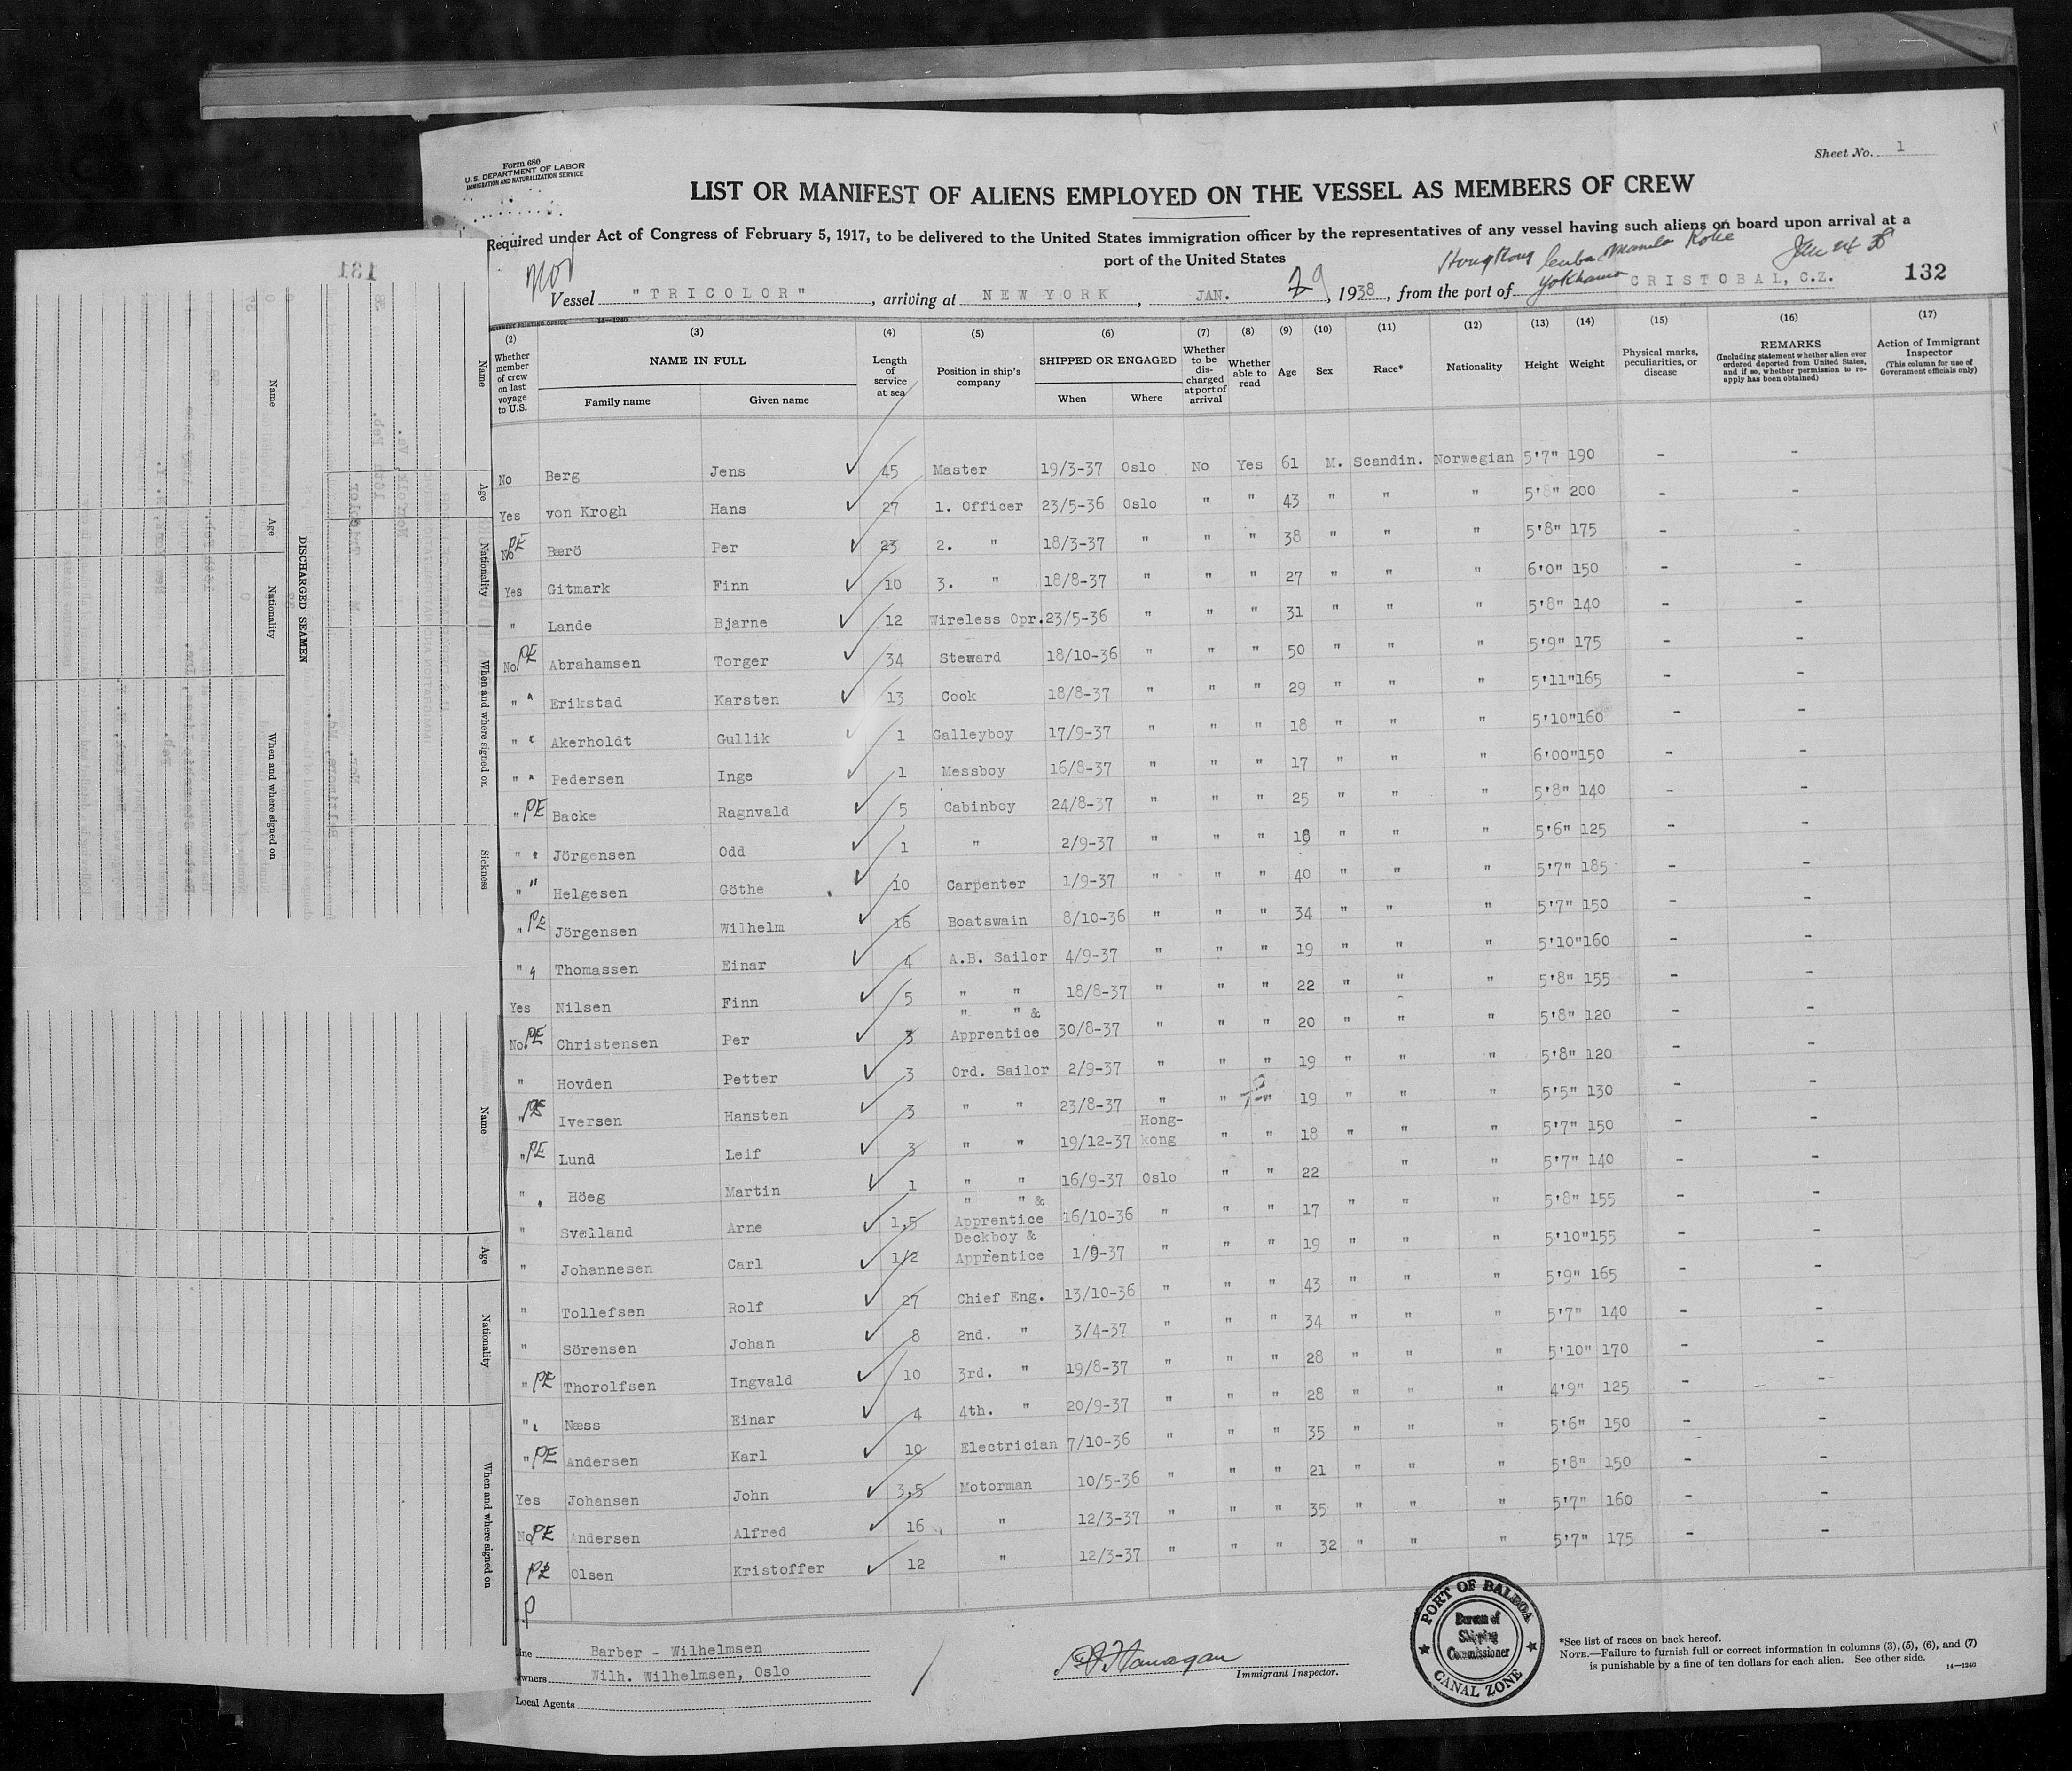 Form 680
U.S. DEPARTMENT OF LABOR
IMMIGRATION AND NATURALIZATION SERVICE
Sheet No. 1
LIST OR MANIFEST OF ALIENS EMPLOYED ON THE VESSEL AS MEMBERS OF CREW
Required under Act of Congress of February 5, 1917, to be delivered to the United States immigration officer by the representatives of any vessel having such aliens on board upon arrival at a
port of the United States
Nor HongKong Manila Kobe Jan 24 38
Vessel "TRICOLOR", arriving at NEW YORK, JAN. 29, 1938, from the port of Yokhama CRISTOBAL, C.Z. 132
(2) (3) (4) (5) (6) (7) (8) (9) (10) (11) (12) (13) (14) (15) (16) (17)
Whether member of crew on last voyage to U.S. NAME IN FULL Family name Given name Length of service at sea Position in ship's company SHIPPED OR ENGAGED When Where Whether to be discharged at port of arrival Whether able to read Age Sex Race* Nationality Height Weight Physical marks, peculiarities, or disease REMARKS (Including statement whether alien ever ordered deported from United States, and if so, whether permission to re-apply has been obtained) Action of Immigrant Inspector (This column for use of Government officials only)
No Berg Jens 45 Master 19/3-37 Oslo No Yes 61 M. Scandin. Norwegian 5'7" 190 - -
Yes von Krogh Hans 27 1. Officer 23/5-36 Oslo " " 43 " " " 5'8" 200 - -
No PE Bærö Per 23 2. " 18/3-37 " " " 38 " " " 5'8" 175 - -
Yes Gitmark Finn 10 3. " 18/8-37 " " " 27 " " " 6'0" 150 - -
" Lande Bjarne 12 Wireless Opr. 23/5-36 " " " 31 " " " 5'8" 140 - -
No PE Abrahamsen Torger 34 Steward 18/10-36 " " " 50 " " " 5'9" 175 - -
" " Erikstad Karsten 13 Cook 18/8-37 " " " 29 " " " 5'11" 165 - -
" " Akerholdt Gullik 1 Galleyboy 17/9-37 " " " 18 " " " 5'10" 160 - -
" " Pedersen Inge 1 Messboy 16/8-37 " " " 17 " " " 6'00" 150 - -
" PE Backe Ragnvald 5 Cabinboy 24/8-37 " " " 25 " " " 5'8" 140 - -
" " Jörgensen Odd 1 " 2/9-37 " " " " " " 5'6" 125 - -
" " Helgesen Göthe 10 Carpenter 1/9-37 " " " 40 " " " 5'7" 185 - -
" PE Jörgensen Wilhelm 16 Boatswain 8/10-36 " " " 34 " " " 5'7" 150 - -
" " Thomassen Einar 4 A.B. Sailor 4/9-37 " " " 19 " " " 5'10" 160 - -
Yes Nilsen Finn 5 " " 18/8-37 " " " 22 " " " 5'8" 155 - -
No PE Christensen Per 3 " " & Apprentice 30/8-37 " " " 20 " " " 5'8" 120 - -
" Hovden Petter 3 Ord. Sailor 2/9-37 " " " 19 " " " 5'8" 120 - -
" PE Iversen Hansten 3 " " 23/8-37 " " " 19 " " " 5'5" 130 - -
" PE Lund Leif 3 " " 19/12-37 Hong-kong " " 18 " " " 5'7" 150 - -
" " Höeg Martin 1 " " 16/9-37 Oslo " " 22 " " 5'7" 140 - -
" Svelland Arne 1,5 " " & Apprentice 16/10-36 " " " 17 " " " 5'8" 155 - -
" Johannesen Carl 1/2 Deckboy & Apprentice 1/9-37 " " " 19 " " " 5'10" 155 - -
" Tollefsen Rolf 27 Chief Eng. 13/10-36 " " " 43 " " " 5'9" 165 - -
" Sörensen Johan 8 2nd. " 3/4-37 " " " 34 " " " 5'7" 140 - -
" PE Thorolfsen Ingvald 10 3rd. " 19/8-37 " " " 28 " " " 5'10" 170 - -
" " Næss Einar 4 4th. " 20/9-37 " " " 28 " " " 4'9" 125 - -
" PE Andersen Karl 10 Electrician 7/10-36 " " " 35 " " " 5'6" 150 - -
Yes Johansen John 3,5 Motorman 10/5-36 " " " 21 " " " 5'8" 150 - -
No PE Andersen Alfred 16 " 12/3-37 " " " 35 " " " 5'7" 160 - -
PE Olsen Kristoffer 12 " 12/3-37 " " " 32 " " " 5'7" 175 - -
P
Line Barber - Wilhelmsen
Owners Wilh. Wilhelmsen, Oslo
Local Agents
Flanagan
Immigrant Inspector.
PORT OF BALBOA
Bureau of
Shipping
Commissioner
CANAL ZONE
*See list of races on back hereof.
NOTE.—Failure to furnish full or correct information in columns (3), (5), (6), and (7)
is punishable by a fine of ten dollars for each alien. See other side. 14-1240
131
DISCHARGED SEAMEN
Name
Age
Nationality
When and where signed on
Name
Age
Nationality
When and where signed or
Sickness
Name
Age
Nationality
When and where signed on